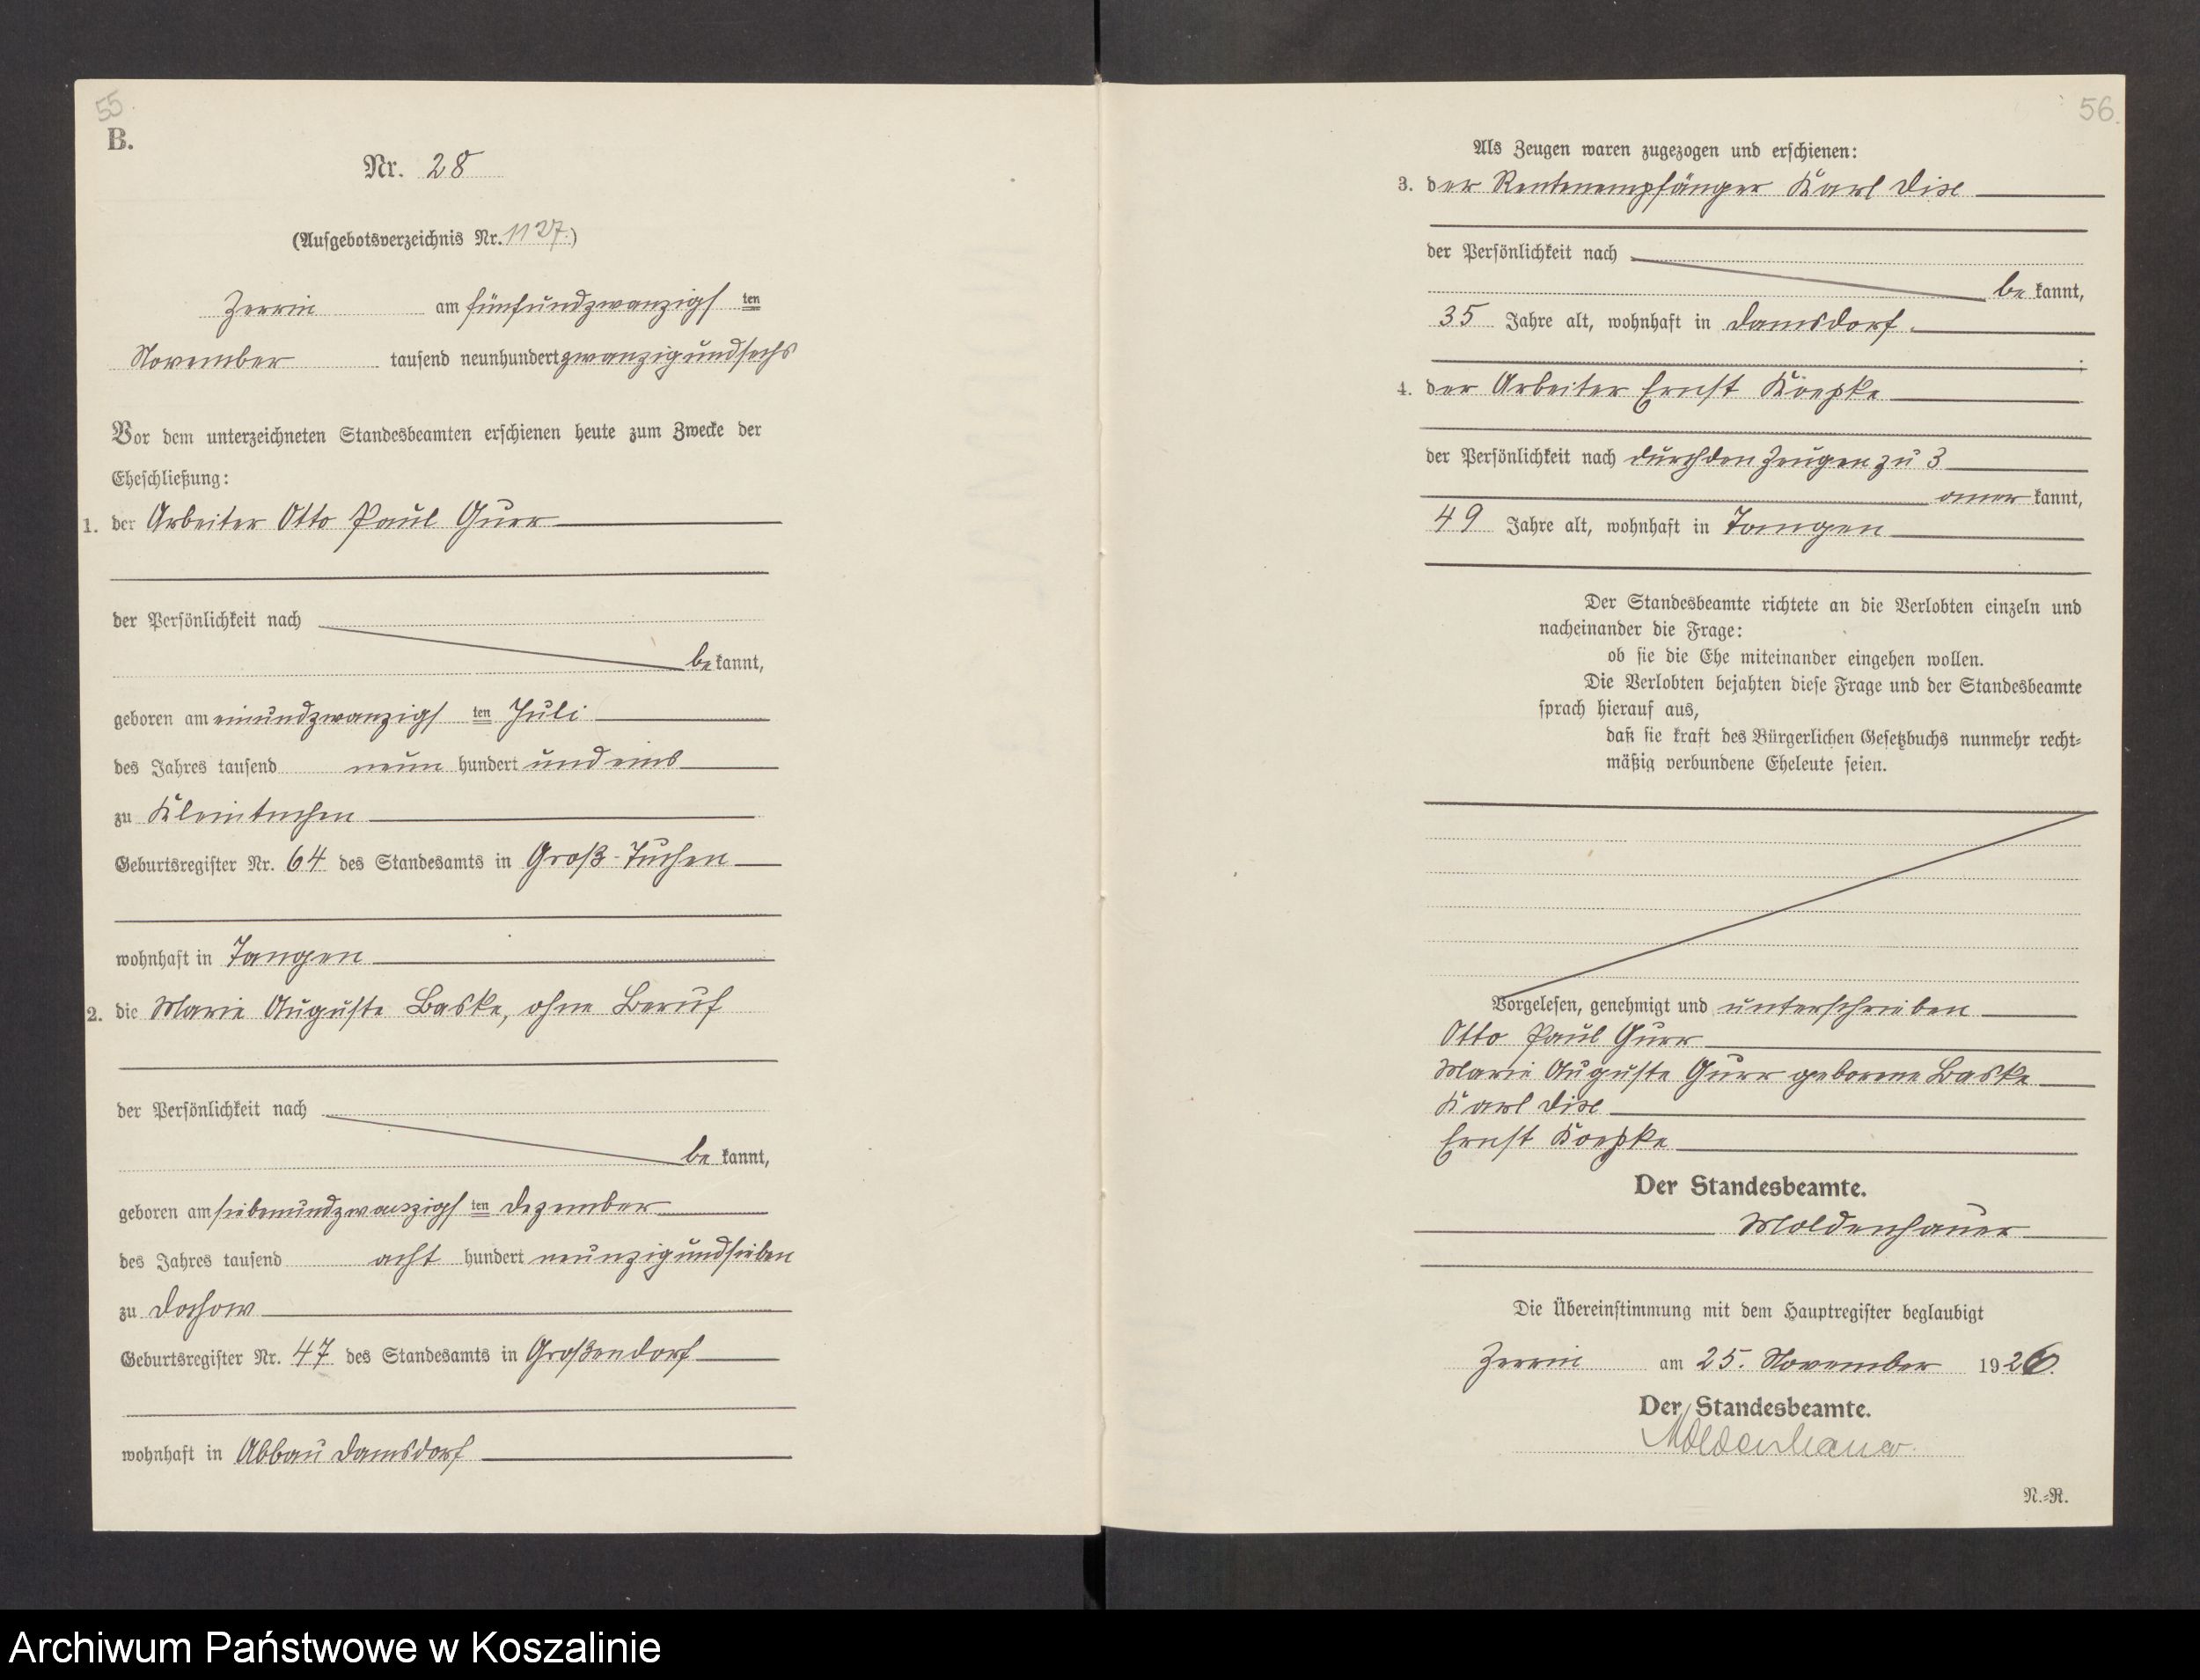 55.
B.
Nr. 28
(Aufgebotsverzeichnis Nr. 1127.)
Zerrin am fünfundzwanzigsten
November tausend neunhundert zwanzigundsechs
Vor dem unterzeichneten Standesbeamten erschienen heute zum Zwecke der
Eheschließung:
1. der Arbeiter Otto Paul Gurr
der Persönlichkeit nach
bekannt,
geboren am einundzwanzigsten Juli
des Jahres tausend neun hundert und eins
zu Kleintuchen
Geburtsregister Nr. 64 des Standesamts in Groß-Tuchen
wohnhaft in Tangen
2. die Marie Auguste Baske, ohne Beruf
der Persönlichkeit nach
be kannt,
geboren am siebenundzwanzigsten Dezember
des Jahres tausend acht hundert neunzigundsieben
zu Dochow
Geburtsregister Nr. 47 des Standesamts in Großendorf
wohnhaft in Abbau Damsdorf
56.
Als Zeugen waren zugezogen und erschienen:
3. der Rentenempfänger Karl
der Persönlichkeit nach
be kannt,
35 Jahre alt, wohnhaft in Damsdorf.
;
4. der Arbeiter Ernst Koepke
der Persönlichkeit nach durch den Zeugen zu 3
anerkannt,
49 Jahre alt, wohnhaft in Tangen
Der Standesbeamte richtete an die Verlobten einzeln und
nacheinander die Frage:
ob sie die Ehe miteinander eingehen wollen.
Die Verlobten bejahten diese Frage und der Standesbeamte
sprach hierauf aus,
daß sie kraft des Bürgerlichen Gesetzbuchs nunmehr recht-
mäßig verbundene Eheleute seien.
Vorgelesen, genehmigt und unterschrieben
Otto Paul Gurr
Marie Auguste Gurr geborene Baske
Karl
Ernst Koepke
Der Standesbeamte.
Moldenhauer
Die Übereinstimmung mit dem Hauptregister beglaubigt
Zerrin am 25. November 1926.
Der Standesbeamte.
Moldenhauer.
N.-R.
Archiwum Państwowe w Koszalinie